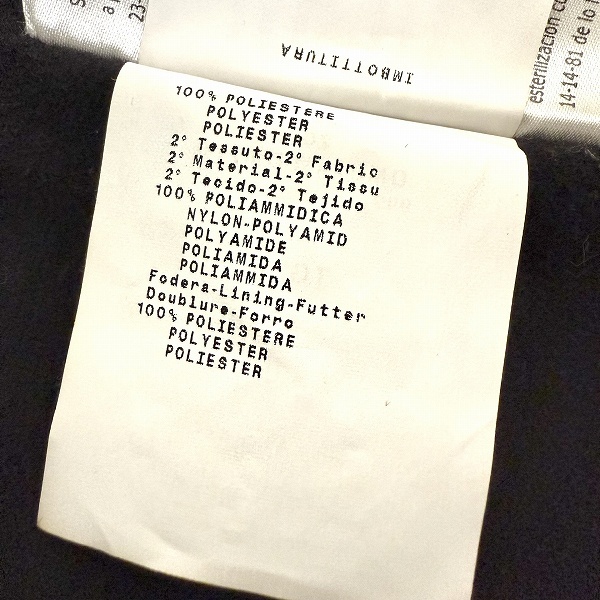 IMBOTTITURA
100% POLIESTERE
POLYESTER
POLIESTER
2° Tessuto-2° Fabric
2° Material-2° Tissu
2° Tecido-2° Tejido
100% POLIAMMIDICA
NYLON-POLYAMID
POLYAMIDE
POLIAMIDA
POLIAMMIDA
Fodera-Lining-Futter
Doublure-Forro
100% POLIESTERE
POLYESTER
POLIESTER
23-
esterilizacion
14-14-81 de lo